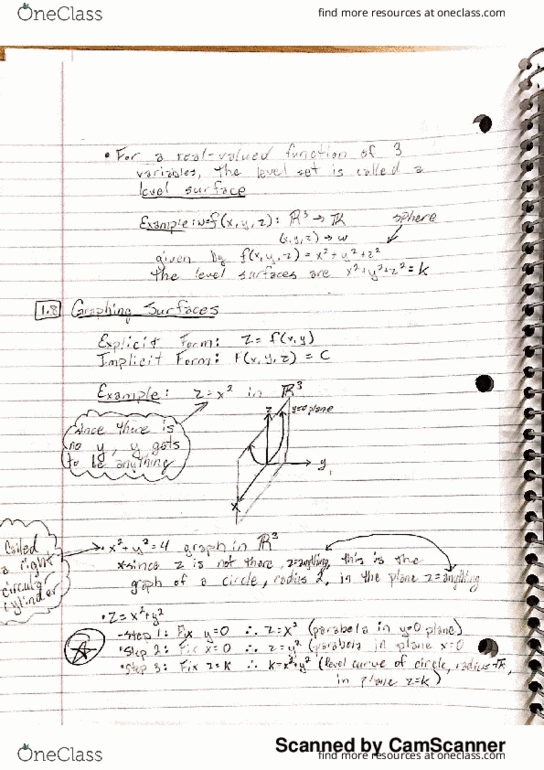 OneClass
find more resources at oneclass.com
• For a real-valued function of 3
variables, the level set is called a
level surface
Example: w=f(x,y,z): ℝ³ → ℝ
sphere
(x,y,z) → w
given by f(x,y,z) = x²+y²+z²
the level surfaces are x²+y²+z² = k
1.8 Graphing Surfaces
Explicit Form: z = f(x,y)
Implicit Form: F(x,y,z) = C
Example: z=x² in ℝ³
since there is
no y, y gets
to be anything
z
y=0 plane
y
x
Called
a right
circular
cylinder
• x²+y²=4 graph in ℝ³
*since z is not there, z=anything, this is the
graph of a circle, radius 2, in the plane z=anything
• z=x²+y²
-Step 1: Fix y=0 ∴ z=x² (parabola in y=0 plane)
•Step 2: Fix x=0 ∴ z=y² (parabola in plane x=0)
•Step 3: Fix z=k ∴ k=x²+y² (level curve of circle, radius √k,
in plane z=k)
Scanned by CamScanner
OneClass
find more resources at oneclass.com